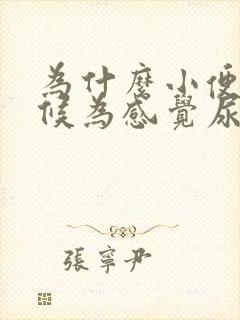 為什麼小便
候為感覺尿
張寧尹